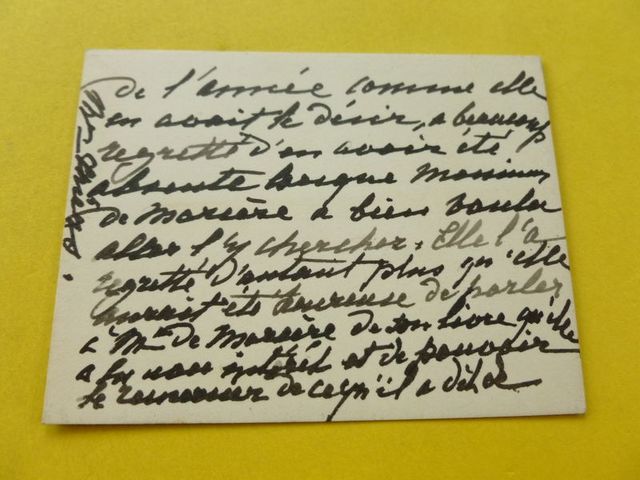 de l'année comme elle
en avait le désir, a beaucoup
regretté d'en avoir été
absente lorsque Monsieur
de Marcère a bien voulu
aller l'y chercher. Elle l'a
regretté d'autant plus qu'elle
aurait été heureuse de parler
à Mr de Marcère de son livre qu'elle
a lu avec intérêt et de pouvoir
le remercier de ce qu'il a dit de